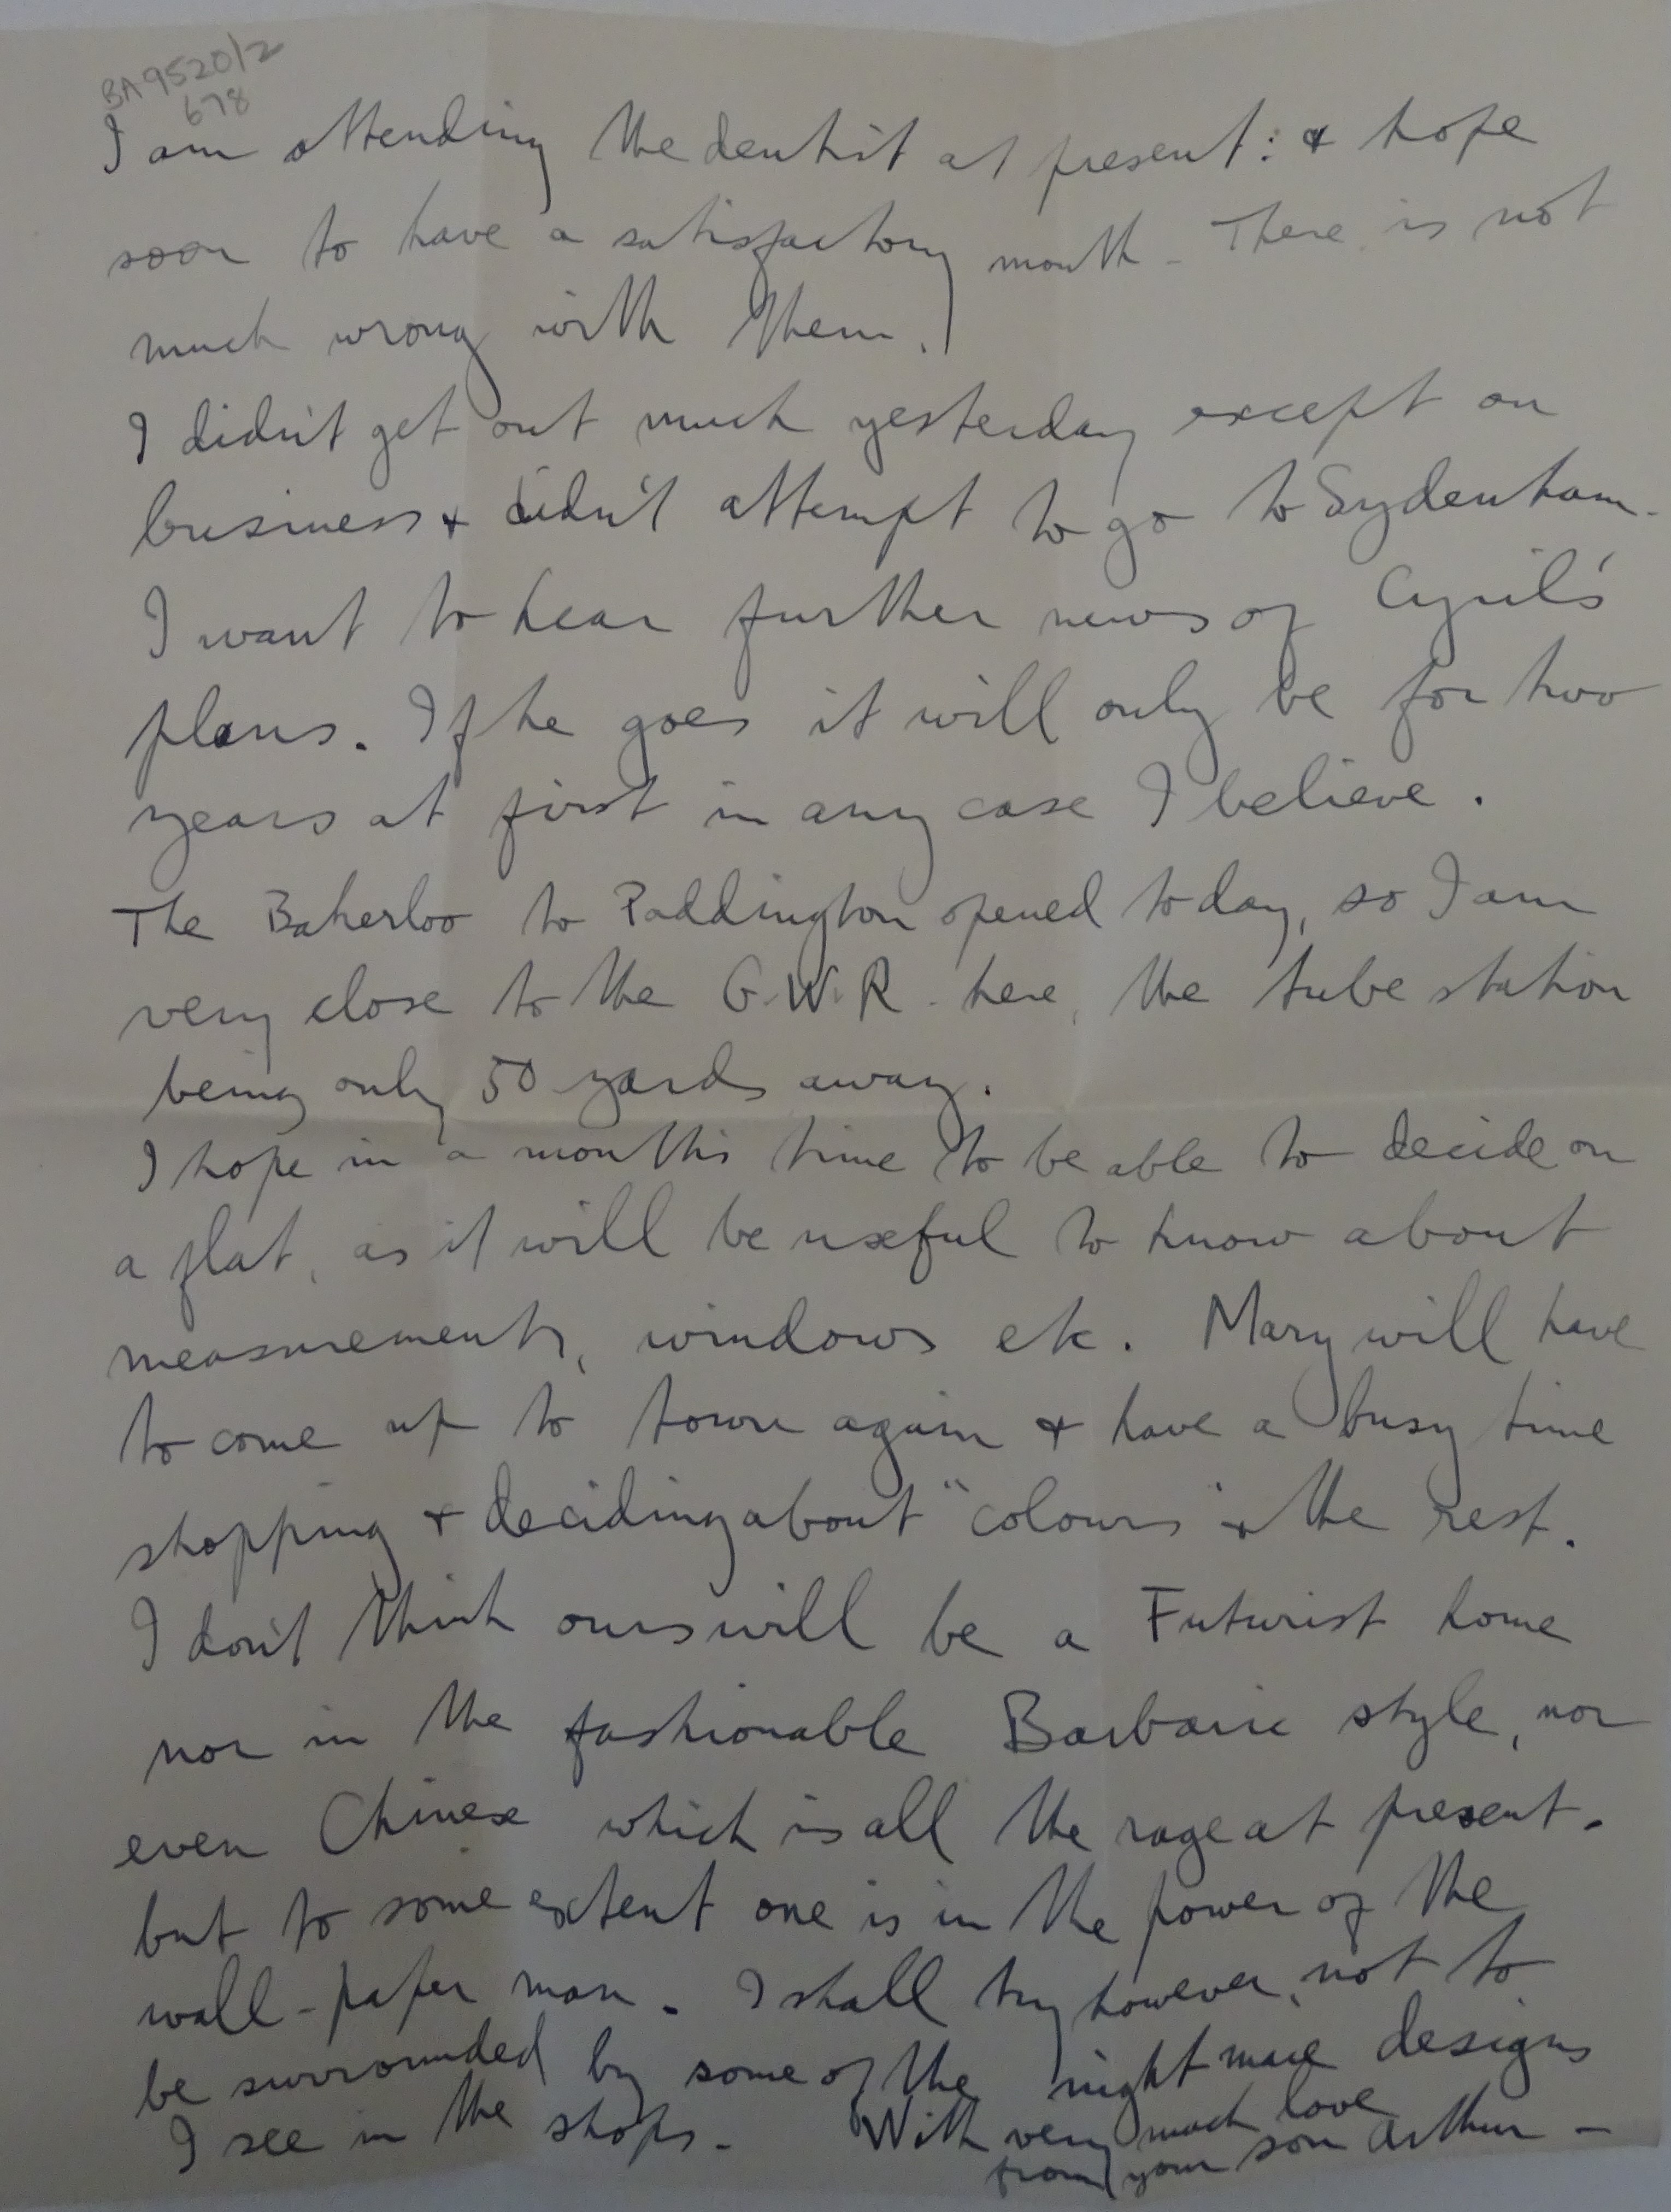 BA9520/2
678
I am attending the dentist at present: & hope
soon to have a satisfactory mouth - There is not
much wrong with them.
I didn't get out much yesterday except on
business & didn't attempt to go to Sydenham.
I want to hear further news of Cyril's
plans. If he goes it will only be for two
years at first in any case I believe.
The Bakerloo to Paddington opened today, so I am
very close to the G.W.R. here, the tube station
being only 50 yards away.
I hope in a month's time to be able to decide on
a flat, as it will be useful to know about
measurements, windows etc. Mary will have
to come up to town again & have a busy time
shopping & deciding about "colours" & the rest.
I don't think ours will be a Futurist home
nor in the fashionable Barbaric style, nor
even Chinese which is all the rage at present.
but to some extent one is in the power of the
wall-paper man. I shall try however, not to
be surrounded by some of the nightmare designs
I see in the shops. With very much love
from your son Arthur -